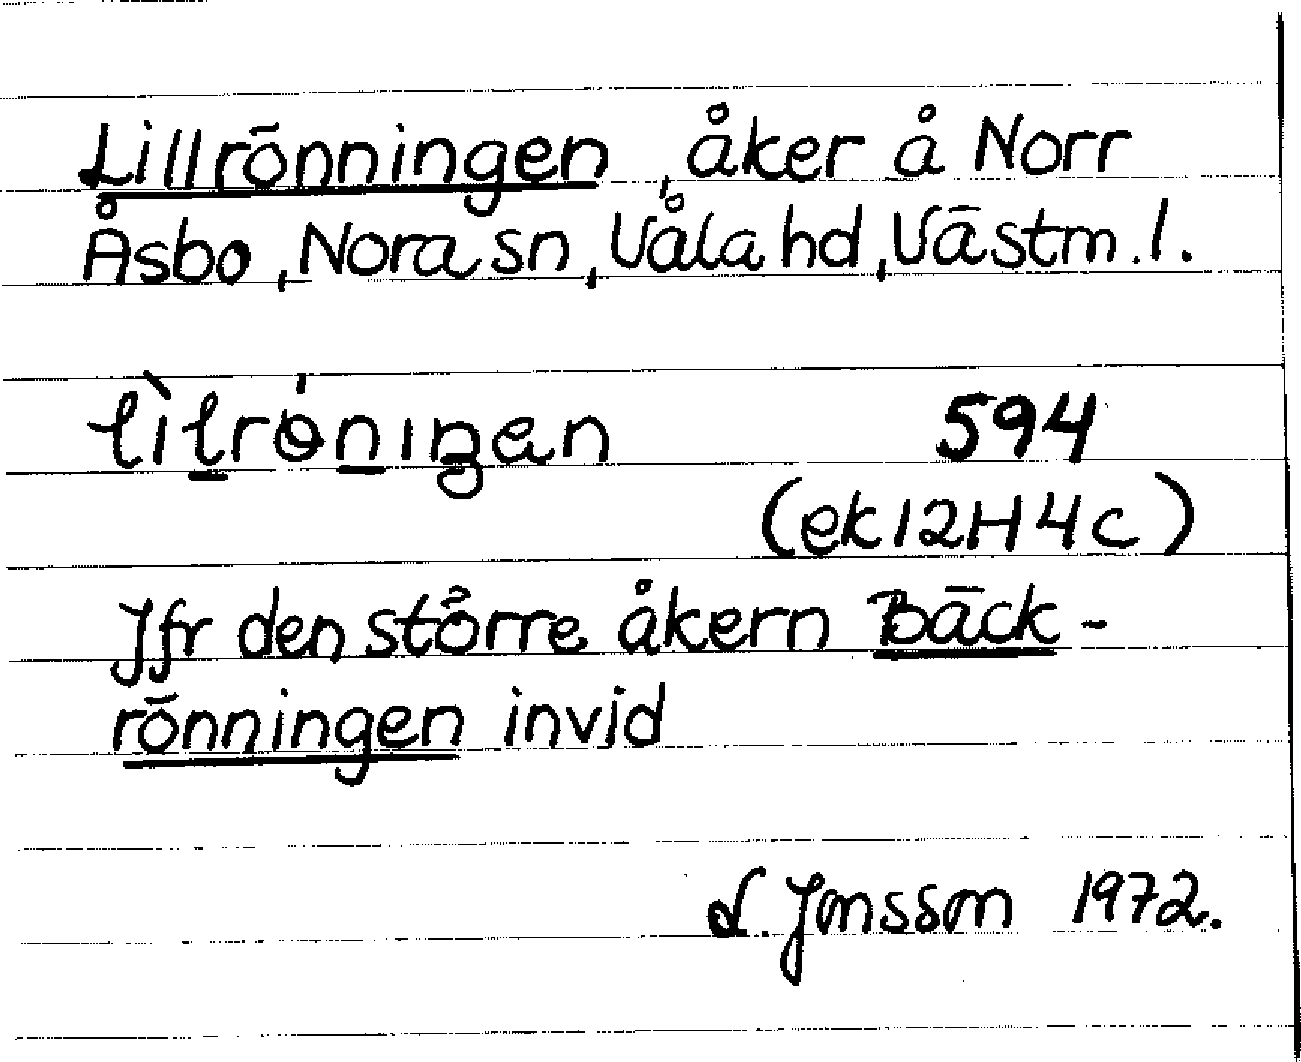 Lillrönningen, åker å Norr
Åsbo, Nora sn, Våla hd, Västm. l.
lìlrö́niŋən 594
(ek 12H4c)
Jfr den större åkern Bäck-
rönningen invid
L. Jonsson 1972.